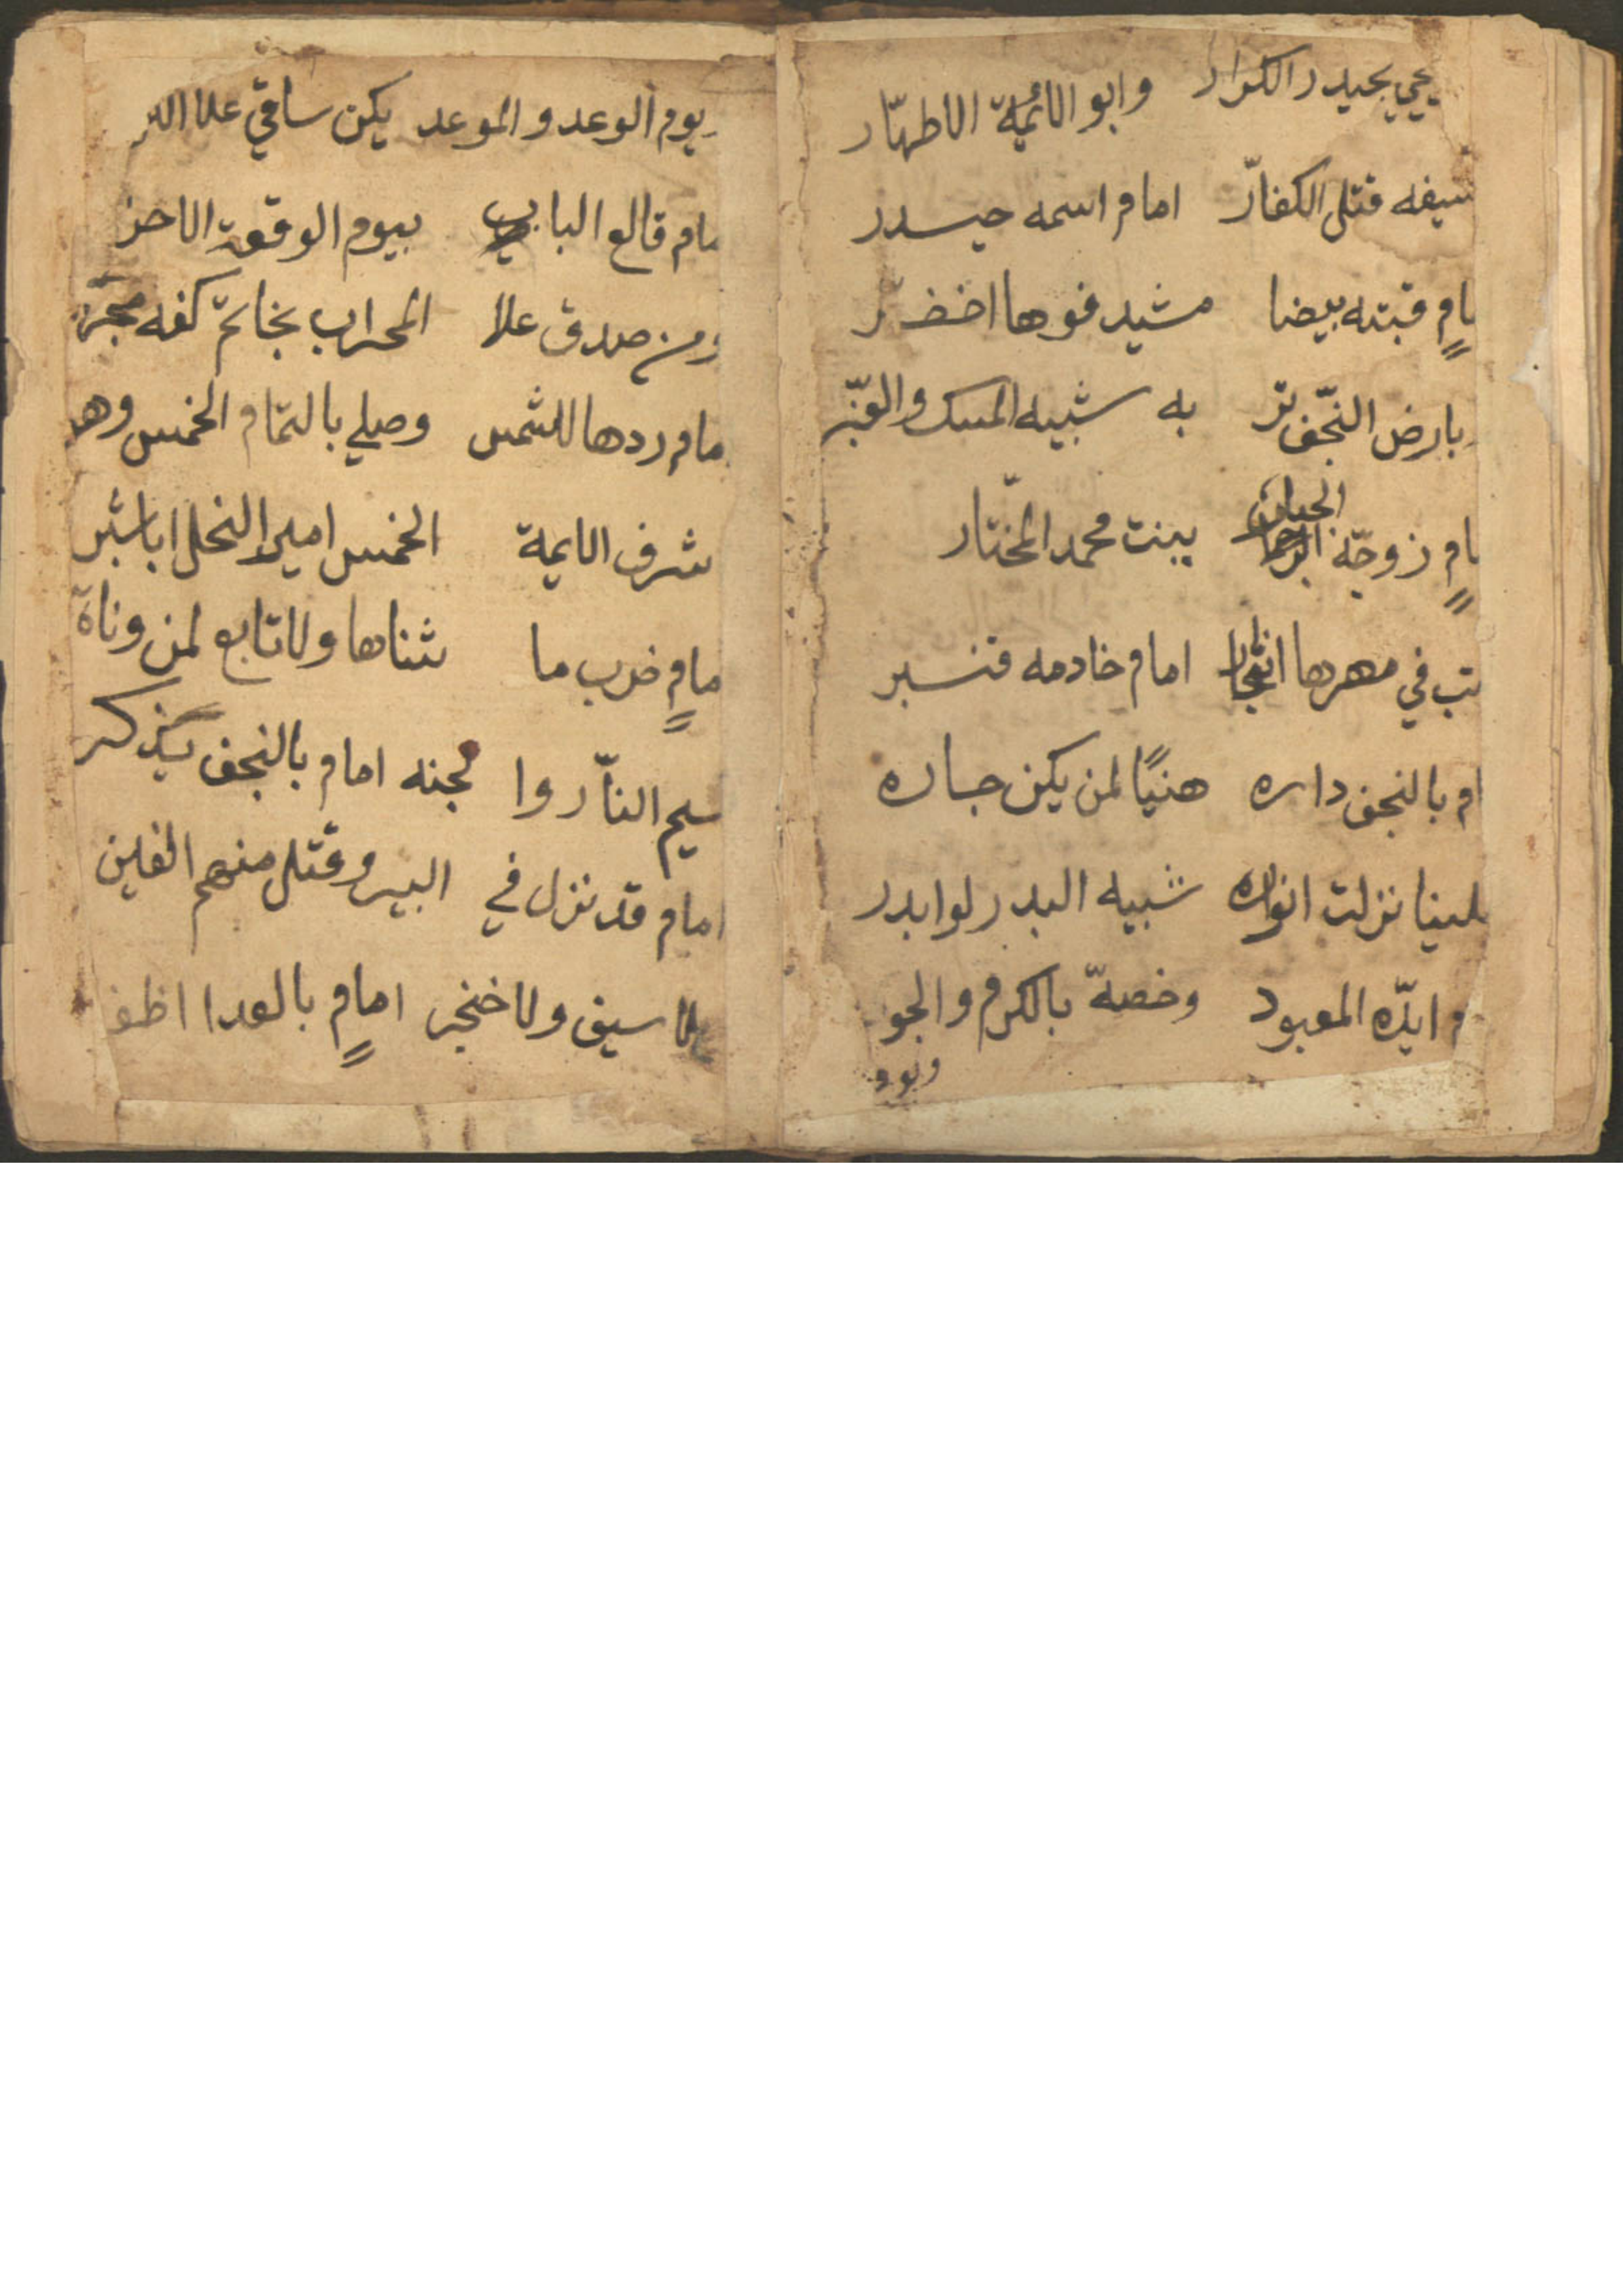 يحيي بحيدر الكرار وابو الائمية الاطهّار
سيفه قتل الكفارّ امام اسمه حيدر
مامٍ قبته بيضا مشيد فوها اخضر
بارض النجّف تر به شبيه المسك والعنبّر
مامٍ زوجّه الجبار ببنت محمد المختّار
تب في مهرها امام خادمه قنبر
ام بالنجف داره هنيًا لمن يكن جاره
علينا نزلت انواره شبيه البدر لوابدر
م ايدّه المعبود وخصهّ بالكرم والجو
بيوم الوعد والموعد يكن ساقي علا
مام قالع الباب بيوم الوقعة الاحز
ومن صدق علا المحراب بخاتم كفه
مام ردها للشمس وصلي بالتمام الخمس وهو
شرف الايمة الخمس امير النحل ابا شبر
مامٍ ضرب ما ثناها ولا تابع لمن وناة
سيم النّار وا لجنه امام بالنجف يذكر
امام قد نزل في البير وقتل منهم الفين
بلا سيف ولا خنجر امامٍ بالعدا اظفر